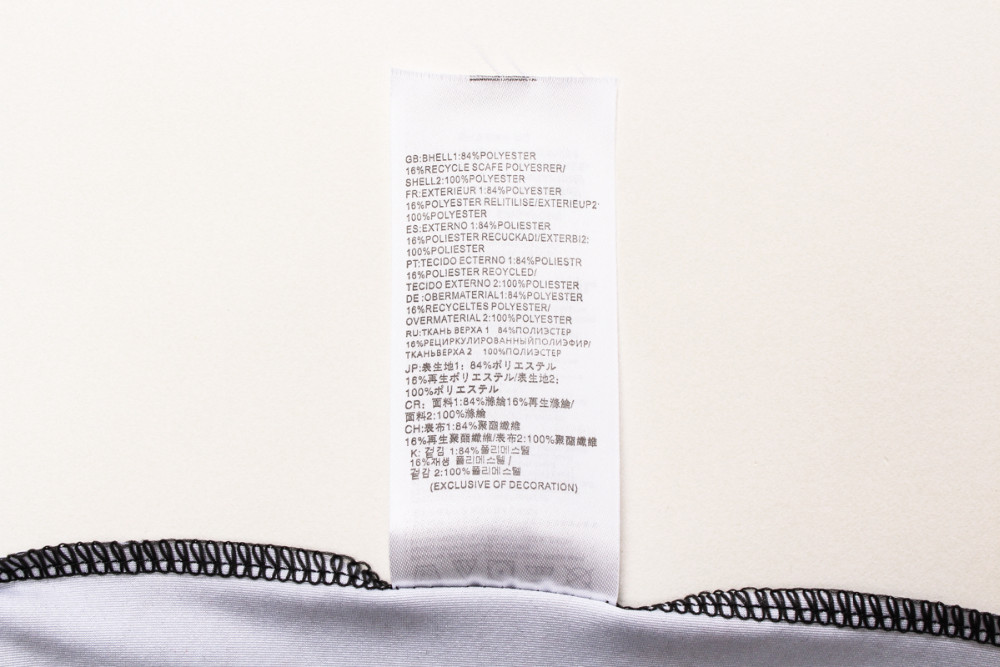 GB:BHELL1:84%POLYESTER
16%RECYCLE SCAFE POLYESRER/
SHELL2:100%POLYESTER
FR:EXTERIEUR 1:84%POLYESTER
16%POLYESTER RELITILISE/EXTERIEUP2:
100%POLYESTER
ES:EXTERNO 1:84%POLIESTER
16%POLIESTER RECUCKADI/EXTERBI2:
100%POLIESTER
PT:TECIDO ECTERNO 1:84%POLIESTR
16%POLIESTER REOYCLED/
TECIDO EXTERNO 2:100%POLIESTER
DE:OBERMATERIAL1:84%POLYESTER
16%RECYCELTES POLYESTER/
OVERMATERIAL 2:100%POLYESTER
RU:ТКАНЬ ВЕРХА 1 84%ПОЛИЭСТЕР
16%РЕЦИРКУЛИРОВАННЫЙПОЛИЭФИР/
ТКАНЬВЕРХА 2 100%ПОЛИЭСТЕР
JP:表生地1; 84%ポリエステル
16%再生ポリエステル/表生地2;
100%ポリエステル
CR; 面料1:84%滌綸16%再生滌綸/
面料2:100%滌綸
CH:表布1:84%聚酯纖維
16%再生聚酯纖維/表布2:100%聚酯纖維
K: 겉감 1:84%폴리메스텔
16%재생 폴리메스텔 /
겉감 2:100%폴리메스텔
(EXCLUSIVE OF DECORATION)